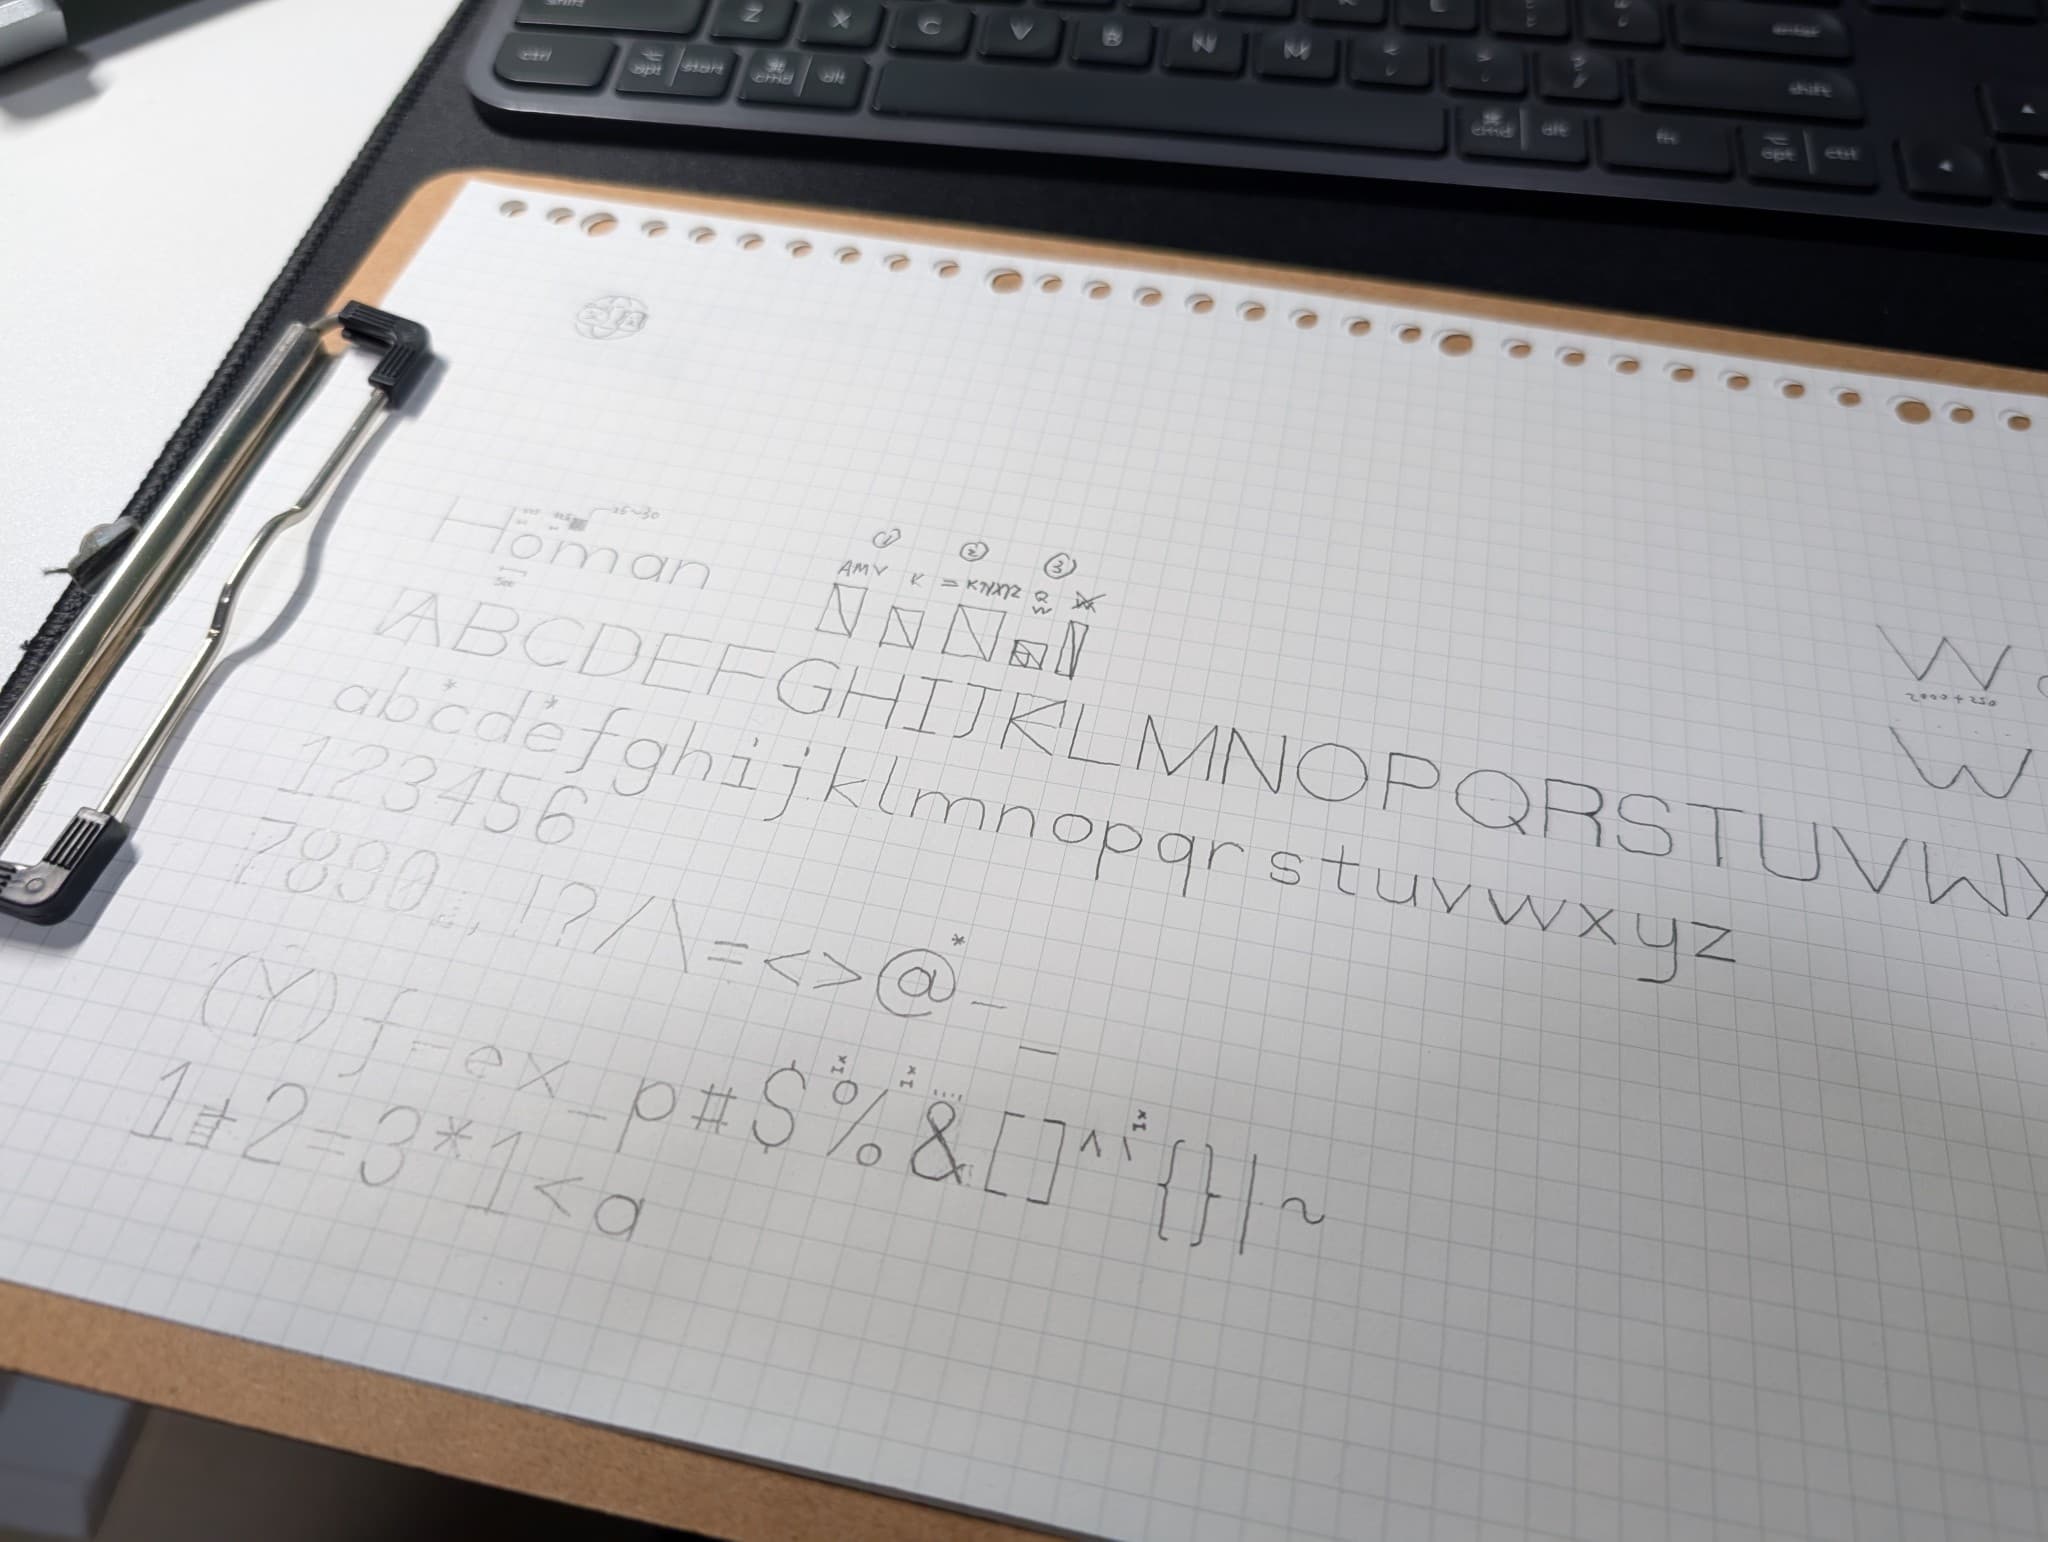 shift Z X C V B N M enter
ctrl opt start cmd alt shift
cmd alt fn opt ctrl
25~30
Homan
① ② ③
AMV K = KNXYZ Q W
ABCDEFGHIJKLMNOPQRSTUVWX
abcdefghijklmnopqrstuvwxyz
123456
7890:;,!?/\=<>@-_
(Y)f-ex_p#$%&[]^`{}|~
1+2=3*1<a
W
2000+250
W